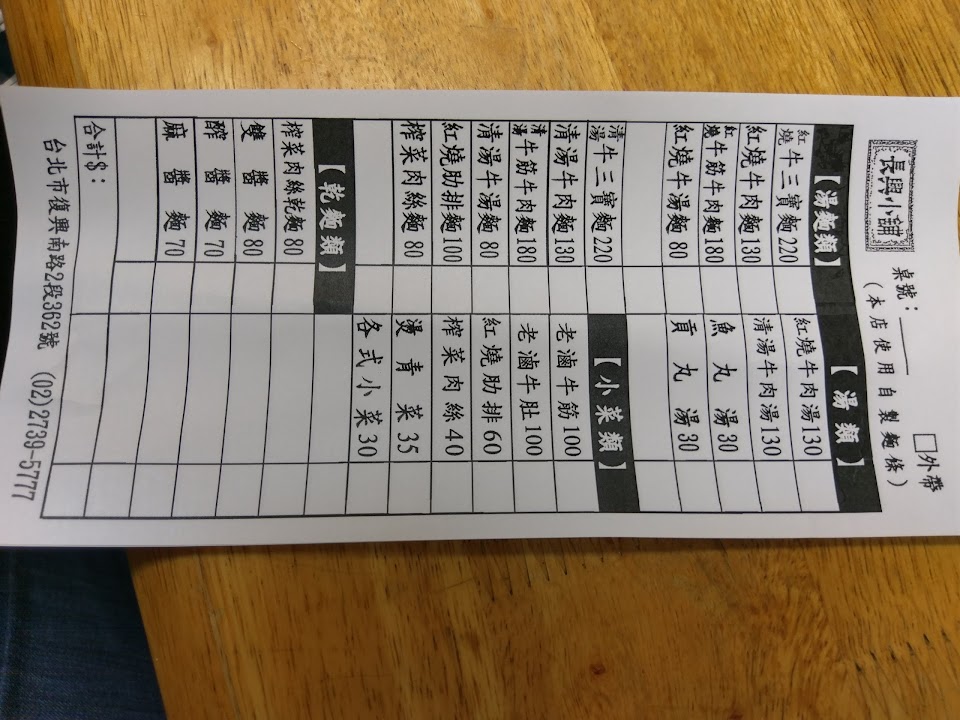 長興小舖
桌號：
□外帶
(本店使用自製麵條)
【湯麵類】
紅燒牛三寶麵220
紅燒牛肉麵130
紅燒牛筋牛肉麵180
紅燒牛湯麵 80
清湯牛三寶麵220
清湯牛肉麵130
清湯牛筋牛肉麵180
清湯牛湯麵 80
紅燒肋排麵100
榨菜肉絲麵 80
【乾麵類】
榨菜肉絲乾麵80
雙 醬 麵 80
酢 醬 麵 70
麻 醬 麵 70
【湯類】
紅燒牛肉湯130
清湯牛肉湯130
魚 丸 湯 30
貢 丸 湯 30
【小菜類】
老滷牛筋100
老滷牛肚100
紅燒肋排 60
榨菜肉絲 40
燙 青 菜 35
各式小菜 30
合計$：
台北市復興南路2段362號 (02)2739-5777